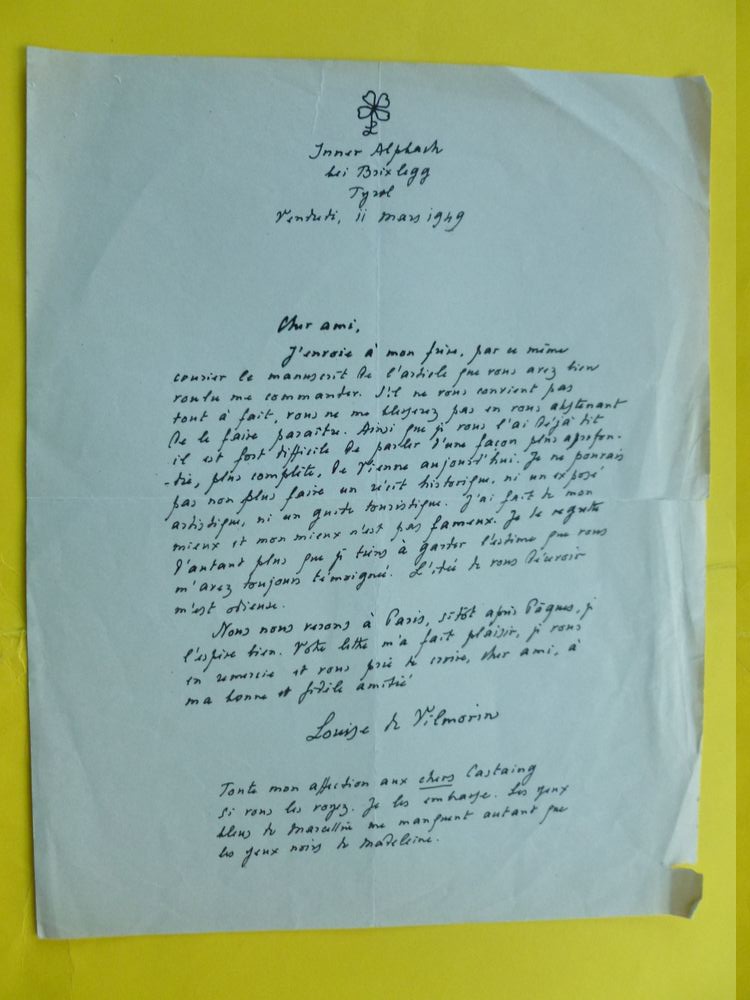 L
Inner Alpbach
bei Brixlegg
Tyrol
Vendredi, 11 mars 1949
Cher ami,
J'envoie à mon frère, par ce même
courier le manuscrit de l'article que vous avez bien
voulu me commander. S'il ne vous convient pas
tout à fait, vous ne me blesserez pas en vous abstenant
de le faire paraître. Ainsi que je vous l'ai déjà dit
il est fort difficile de parler d'une façon plus aprofon-
-die, plus complète, de Vienne aujourd'hui. Je ne pouvais
pas non plus faire un récit historique, ni un exposé
artistique, ni un guide touristique. J'ai fait de mon
mieux et mon mieux n'est pas fameux. Je le regrette
d'autant plus que je tiens à garder l'estime que vous
m'avez toujours témoignée. L'idée de vous décevoir
m'est odieuse.
Nous nous verons à Paris, sitôt après Pâques, je
l'espère bien. Votre lettre m'a fait plaisir, je vous
en remercie et vous prie de croire, cher ami, à
ma bonne et fidèle amitié
Louise de Vilmorin
Toute mon affection aux chers Castaing
si vous les voyez. Je les embrasse. Les yeux
bleus de Marcellin me manquent autant que
les yeux noirs de Madeleine.